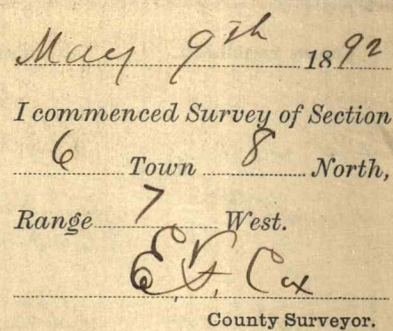 May 9th 1892
I commenced Survey of Section
6 Town 8 North,
Range 7 West.
E. F. Cox
County Surveyor.